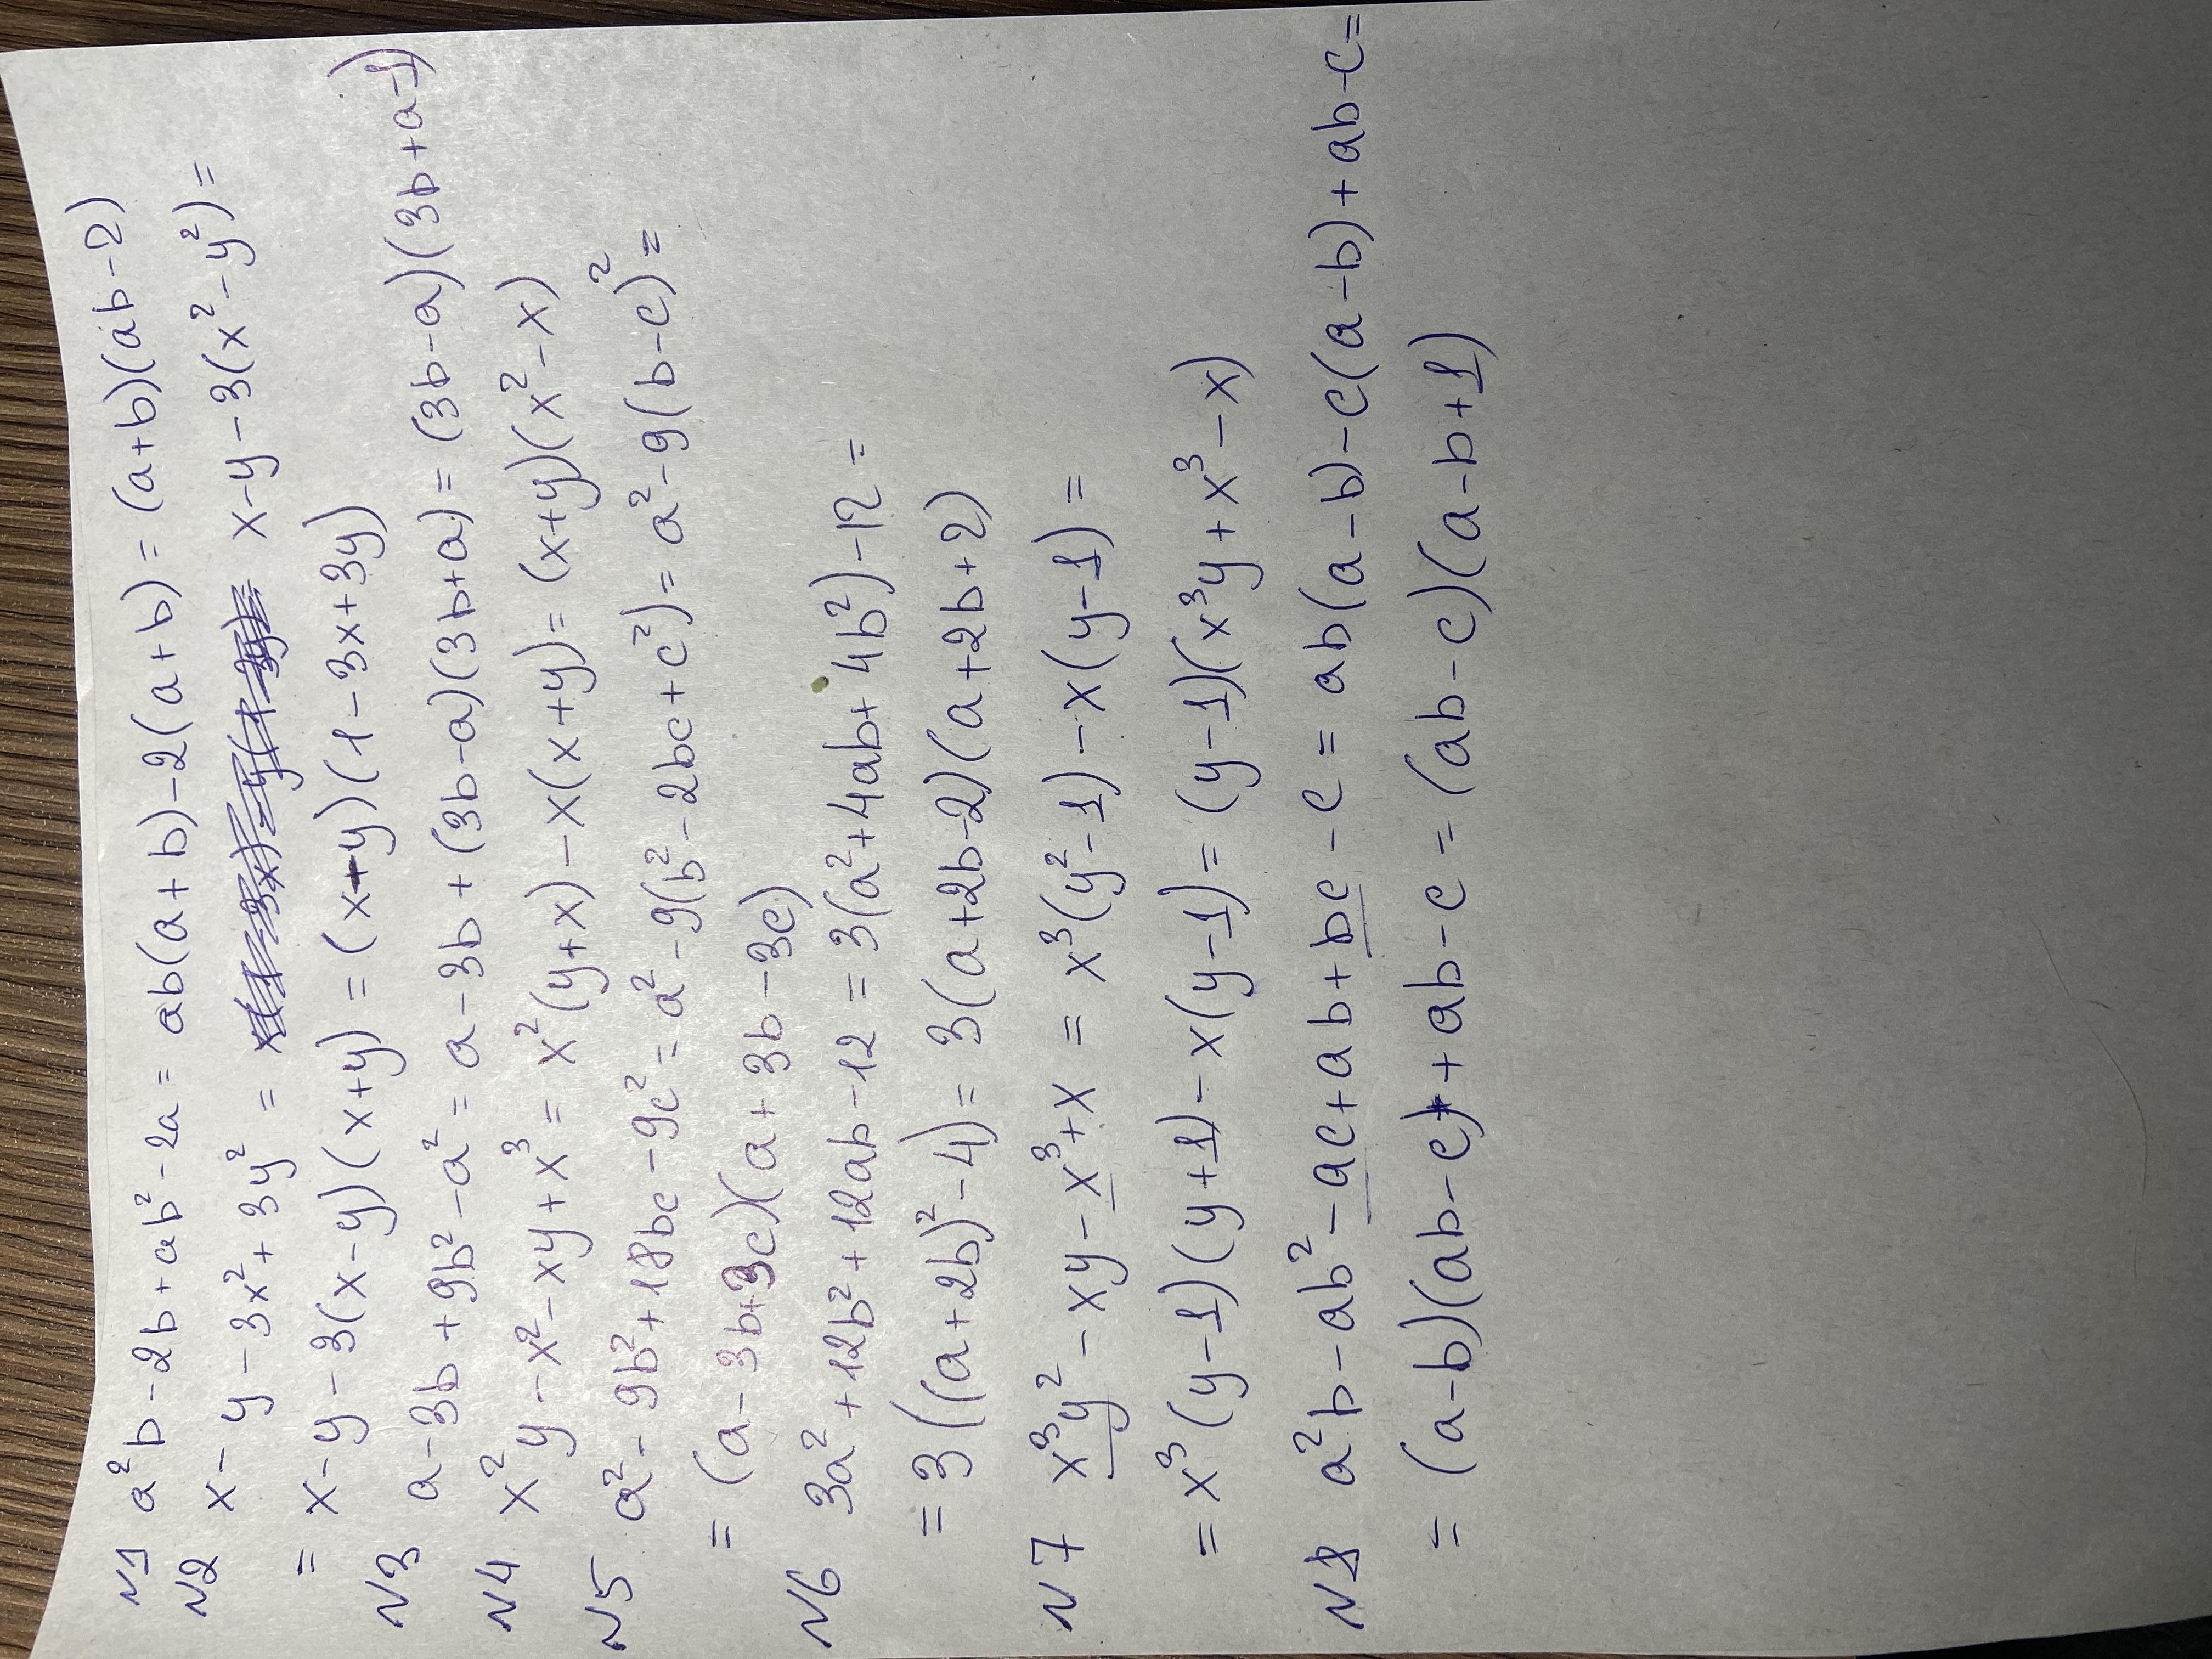 N1 a²b-2b+ab²-2a = ab(a+b)-2(a+b) = (a+b)(ab-2)
N2 x-y-3x²+3y² = x-y-3(x²-y²) =
= x-y-3(x-y)(x+y) = (x-y)(1-3x+3y)
N3 a-3b+9b²-a² = a-3b+(3b-a)(3b+a) = (3b-a)(3b+a-1)
N4 x²y-x²-xy+x³ = x²(y+x)-x(x+y) = (x+y)(x²-x)
N5 a²-9b²+18bc-9c² = a²-9(b²-2bc+c²) = a²-9(b-c)² =
= (a-3b+3c)(a+3b-3c)
N6 3a²+12b²+12ab-12 = 3(a²+4ab+4b²)-12 =
= 3((a+2b)²-4) = 3(a+2b-2)(a+2b+2)
N7 x³y²-xy-x³+x = x³(y²-1)-x(y-1) =
= x³(y-1)(y+1)-x(y-1) = (y-1)(x³y+x³-x)
N8 a²b-ab²-ac+ab+bc-c = ab(a-b)-c(a-b)+ab-c =
= (a-b)(ab-c)+ab-c = (ab-c)(a-b+1)